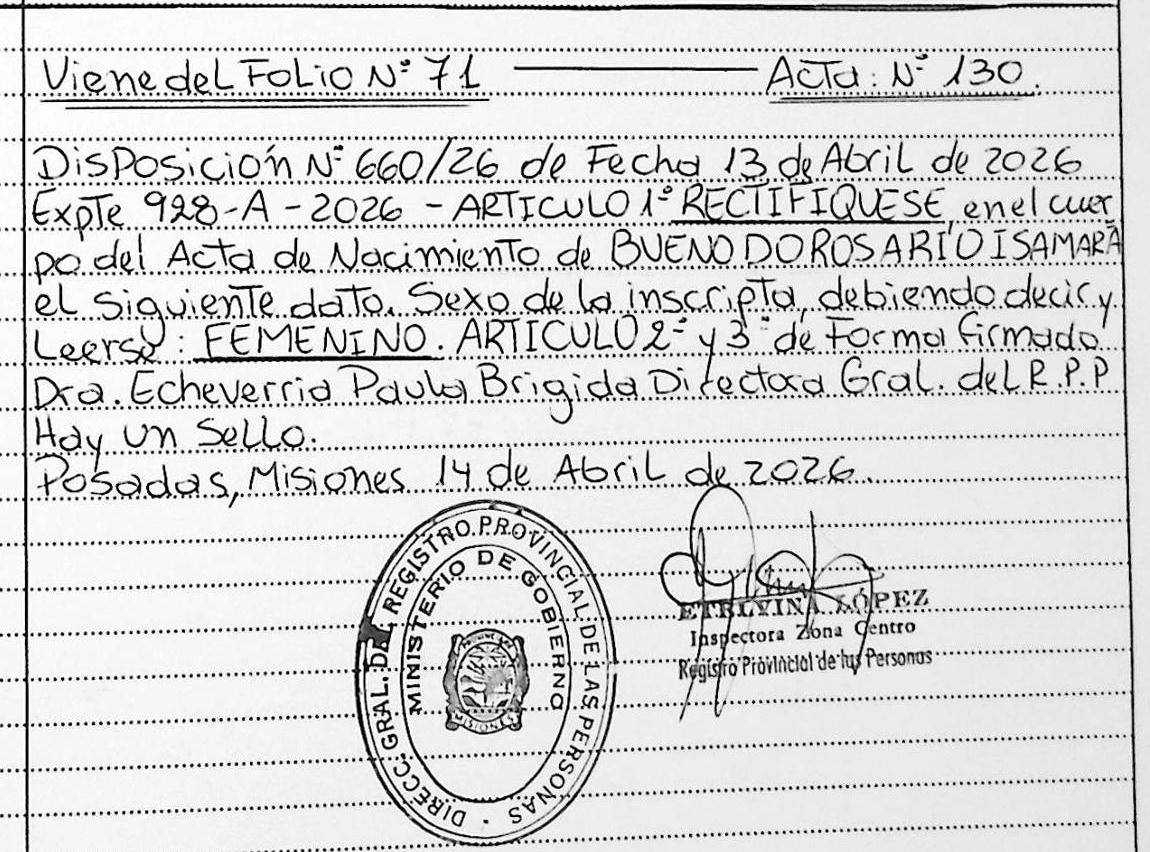 Viene del Folio Nº 71 Acta: Nº 130.
Disposición Nº 660/26 de Fecha 13 de Abril de 2026
Expte 928-A-2026 - ARTICULO 1º RECTIFIQUESE, en el cuer
po del Acta de Nacimiento de BUENO DO ROSARIO ISAMARA
el siguiente dato. Sexo de la inscripta, debiendo decir y
Leerse: FEMENINO. ARTICULO 2º y 3º de Forma firmado
Dra. Echeverria Paula Brigida Directora Gral. del R.P.P
Hay un Sello.
Posadas, Misiones 14 de Abril de 2026.
DIRECC. GRAL. DEL REGISTRO PROVINCIAL DE LAS PERSONAS
MINISTERIO DE GOBIERNO
MISIONES
LÓPEZ
Inspectora Zona Centro
Registro Provincial de las Personas